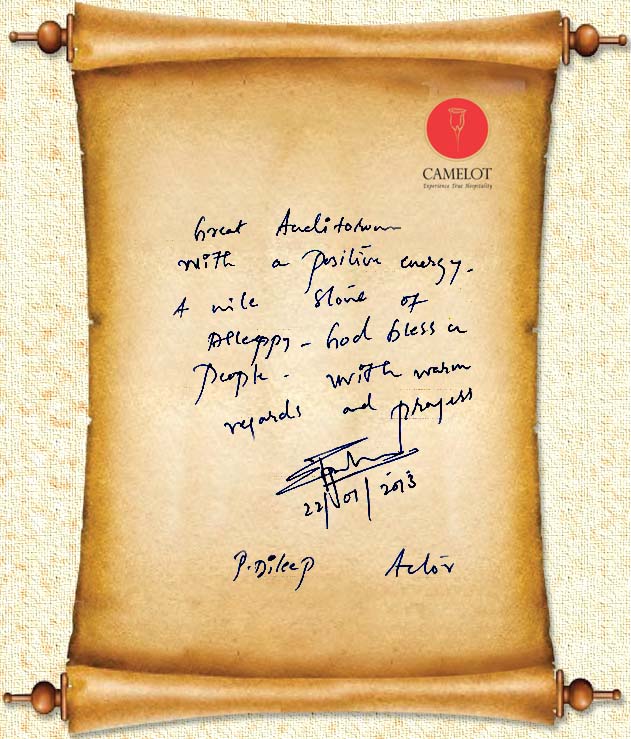 CAMELOT
Experience True Hospitality
Great Auditorium
with a positive energy.
A mile stone of
Alleppy - God bless
People - with warm
regards and prayers
22/01/2013
P. Dileep Actor